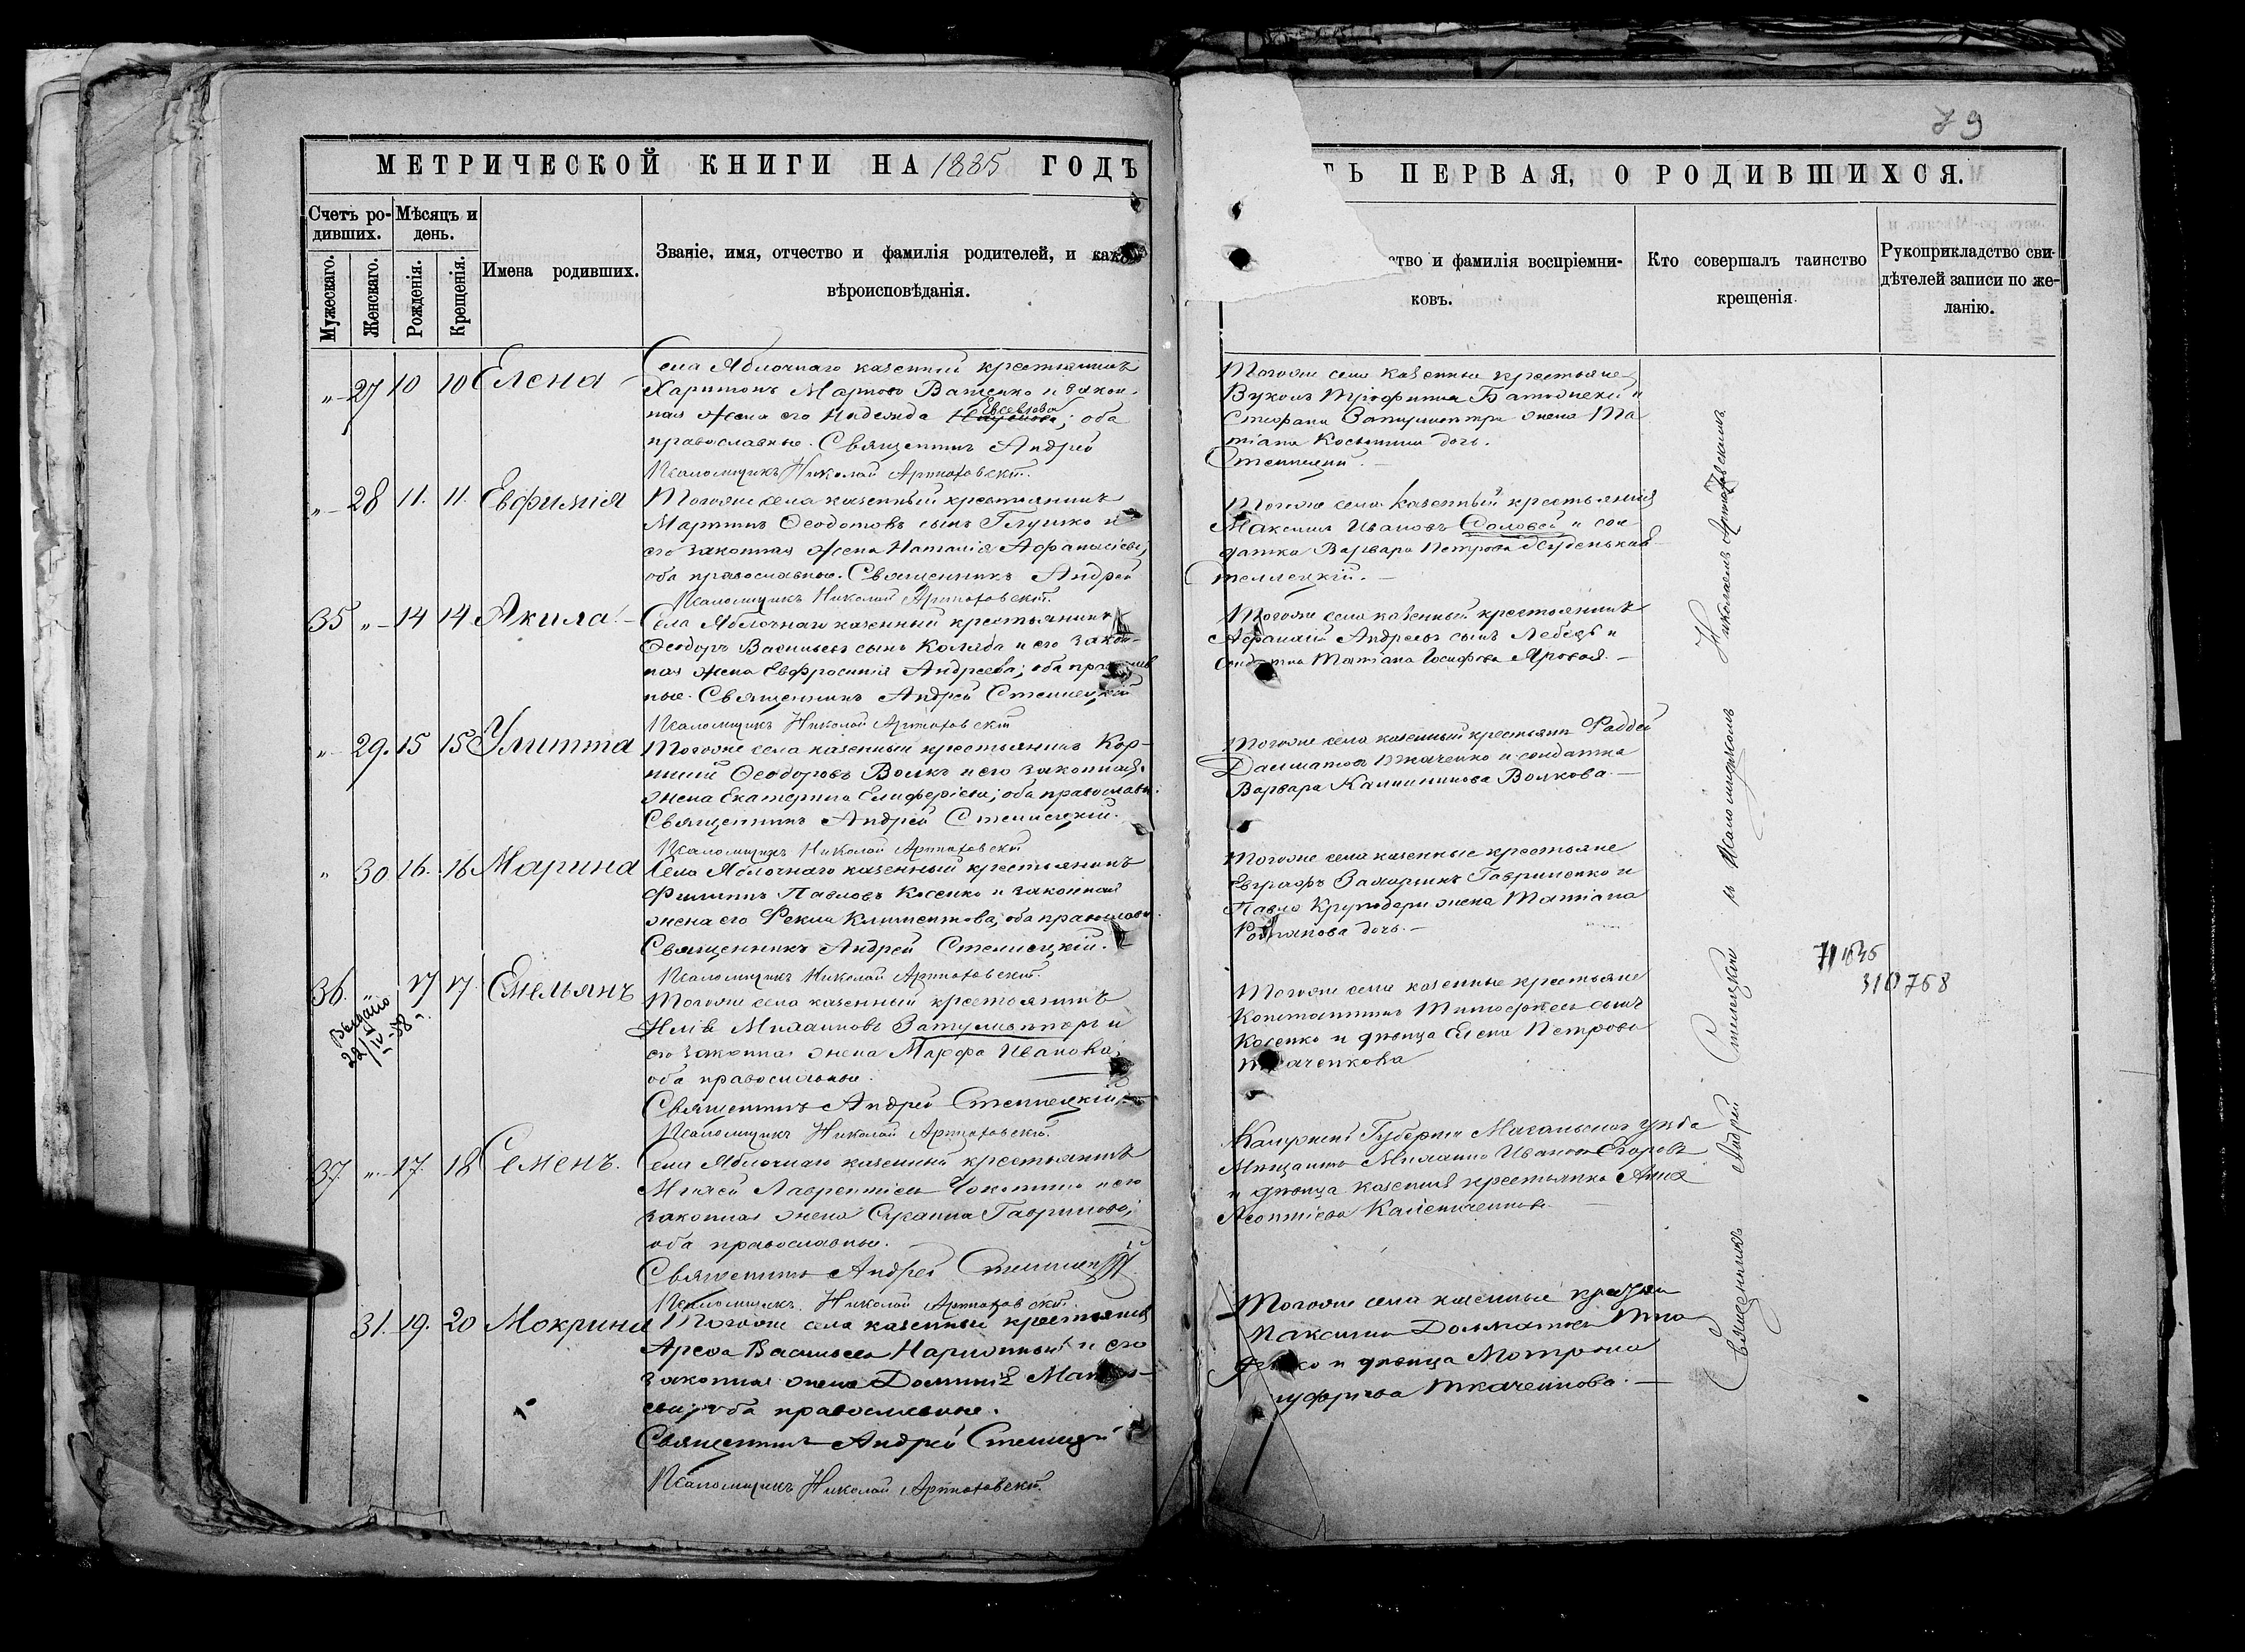 МЕТРИЧЕСКОЙ КНИГИ НА 1885 ГОДЪ
Счетъ ро-
дившихъ.
Мѣсяцъ и
день.
Мужескаго.
Женскаго.
Рожденія.
Крещенія.
Имена родивших.
Званіе, имя, отчество и фамилія родителей, и како
вѣроисповѣданія.
"
27
10
10
Елена
Села Яблочнаго казенный крестьянинъ
Харитонъ Ватенко и закон-
ная жена его Надежда Евсевіова; оба
православные. Священникъ Андрей
Псаломщикъ Николай Артюховскій.
"
28
11.
11.
Евфимія
Тогоже села казенный крестьянинъ
Мартинъ Ѳеодотовъ сынъ Глушко и
его законная жена Наталія Афанасіева;
оба православные. Священникъ Андрей
Псаломщикъ Николай Артюховскій.
35
"
14
14
Акила
Села Яблочнаго казенный крестьянинъ
Ѳеодоръ Васильевъ сынъ Коляда и его закон-
ная жена Евфросинія Андреева; оба православ
ные. Священникъ Андрей Стеллецкій
Псаломщикъ Николай Артюховскій
"
29.
15
15
Улитта
Тогоже села казенный крестьянинъ Кор-
нилій Ѳеодоровъ Волкъ и его законная
жена Екатерина Елифіерiева; оба православн.
Священникъ Андрей Стеллецкій.
Псаломщикъ Николай Артюховскій
"
30
16.
16
Марина
Села Яблочнаго казенный крестьянинъ
Филиппъ Павловъ Косенко и законная
жена его Фекла Климентова, оба православн.
Священникъ Андрей Стеллецкій.
Псаломщикъ Николай Артюховскій.
36.
"
17
17
Емельянъ
Выдано
22/IV-58 г.
Тогоже села казенный крестьянинъ
Илія Михаиловъ Затулывѣтеръ и
его законная жена Марфа Иванова;
оба православные.
Священникъ Андрей Стеллецкій
Псаломщикъ Николай Артюховскій.
37
"
17.
18
Семенъ.
Села Яблочнаго казенный крестьянинъ
Лаврентіевъ и его
законная жена Гаврилова;
оба православные.
Священникъ Андрей Стеллецкій
Псаломщикъ Николай Артюховскій.
31.
19.
20
Мокрина
Тогоже села казенный крестьянинъ
Арефа Васильевъ и его
законная жена Домникія
оба православные.
Священникъ Андрей
Псаломщикъ Николай Артюховскій.
79
ТЬ ПЕРВАЯ, О РОДИВШИХСЯ.
ство и фамилія воспріемни-
ковъ.
Кто совершалъ таинство
крещенія.
Рукоприкладство сви-
дѣтелей записи по же-
ланію.
Тогоже села казенные крестьяне
Вуколъ Трофимовъ и
Стефана жена Та
тіана Косьмина дочь.
Стеллецкій.
Тогоже села казенный крестьянинъ
Максимъ Ивановъ Соловей и сол
датка Варвара Петрова
Стеллецкій.
Тогоже села казенный крестьянинъ
Афанасій Андреевъ сынъ Лебедь и
Татіана Іосифова Яровая.
Тогоже села казенный крестьянинъ Фаддей
Далматовъ Ткаченко и солдатка
Варвара Калинникова Волкова.
Тогоже села казенные крестьяне
Евграфъ Захаринъ Гавриленко и
Павла жена Татіана
дочь.
Тогоже села казенные крестьяне
Константинъ Тимофѣевъ сынъ
Косенко и дѣвица Елена Петрова
Ткаченкова
Калужской Губерніи уѣзда
Мѣщанинъ Михаилъ Ивановъ Егоровъ
и дѣвица казенная крестьянка Анна
Леонтіева
Тогоже села казенные
Максимъ Долматовъ Тка
ченко и дѣвица Матрона
Ткаченкова.
Священникъ Андрей Стеллецкій съ Псаломщикомъ Николаемъ Артюховскимъ
310768